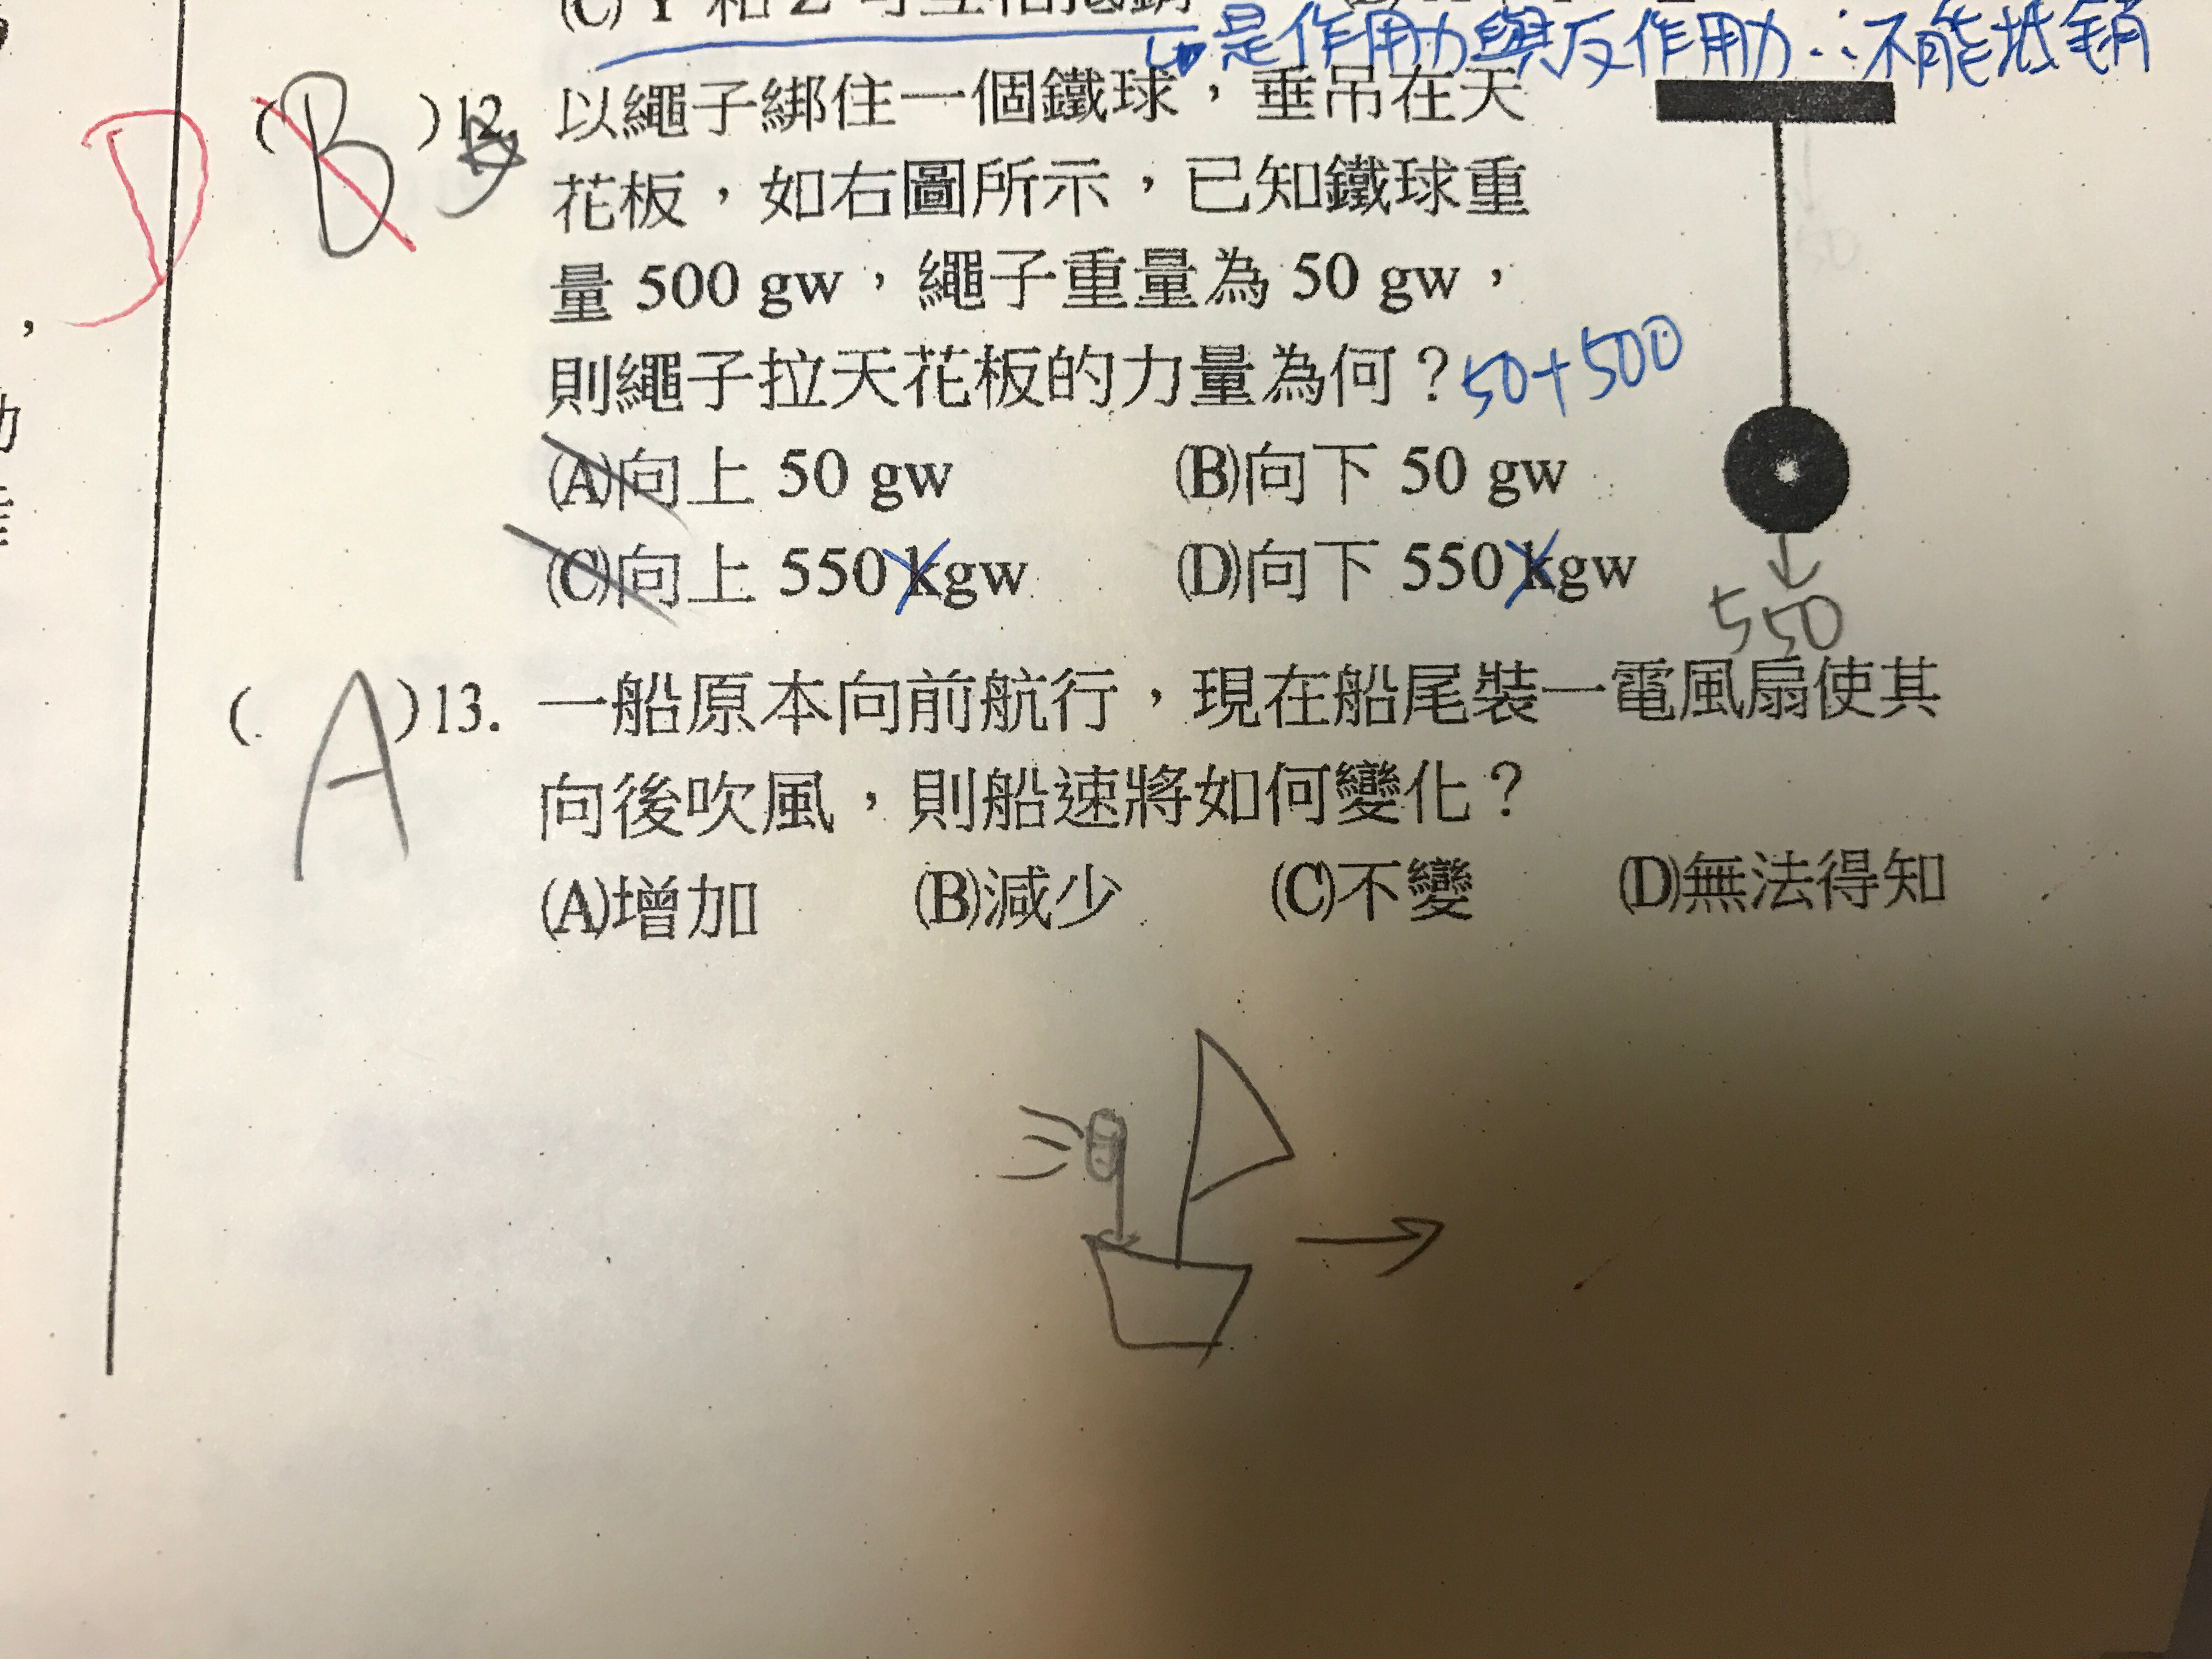 是作用力與反作用力∴不能抵銷
D
(B)12. 以繩子綁住一個鐵球，垂吊在天
花板，如右圖所示，已知鐵球重
量 500 gw，繩子重量為 50 gw，
則繩子拉天花板的力量為何？50+500
(A)向上 50 gw (B)向下 50 gw
(C)向上 550 kgw (D)向下 550 kgw
550
(A)13. 一船原本向前航行，現在船尾裝一電風扇使其
向後吹風，則船速將如何變化？
(A)增加 (B)減少 (C)不變 (D)無法得知